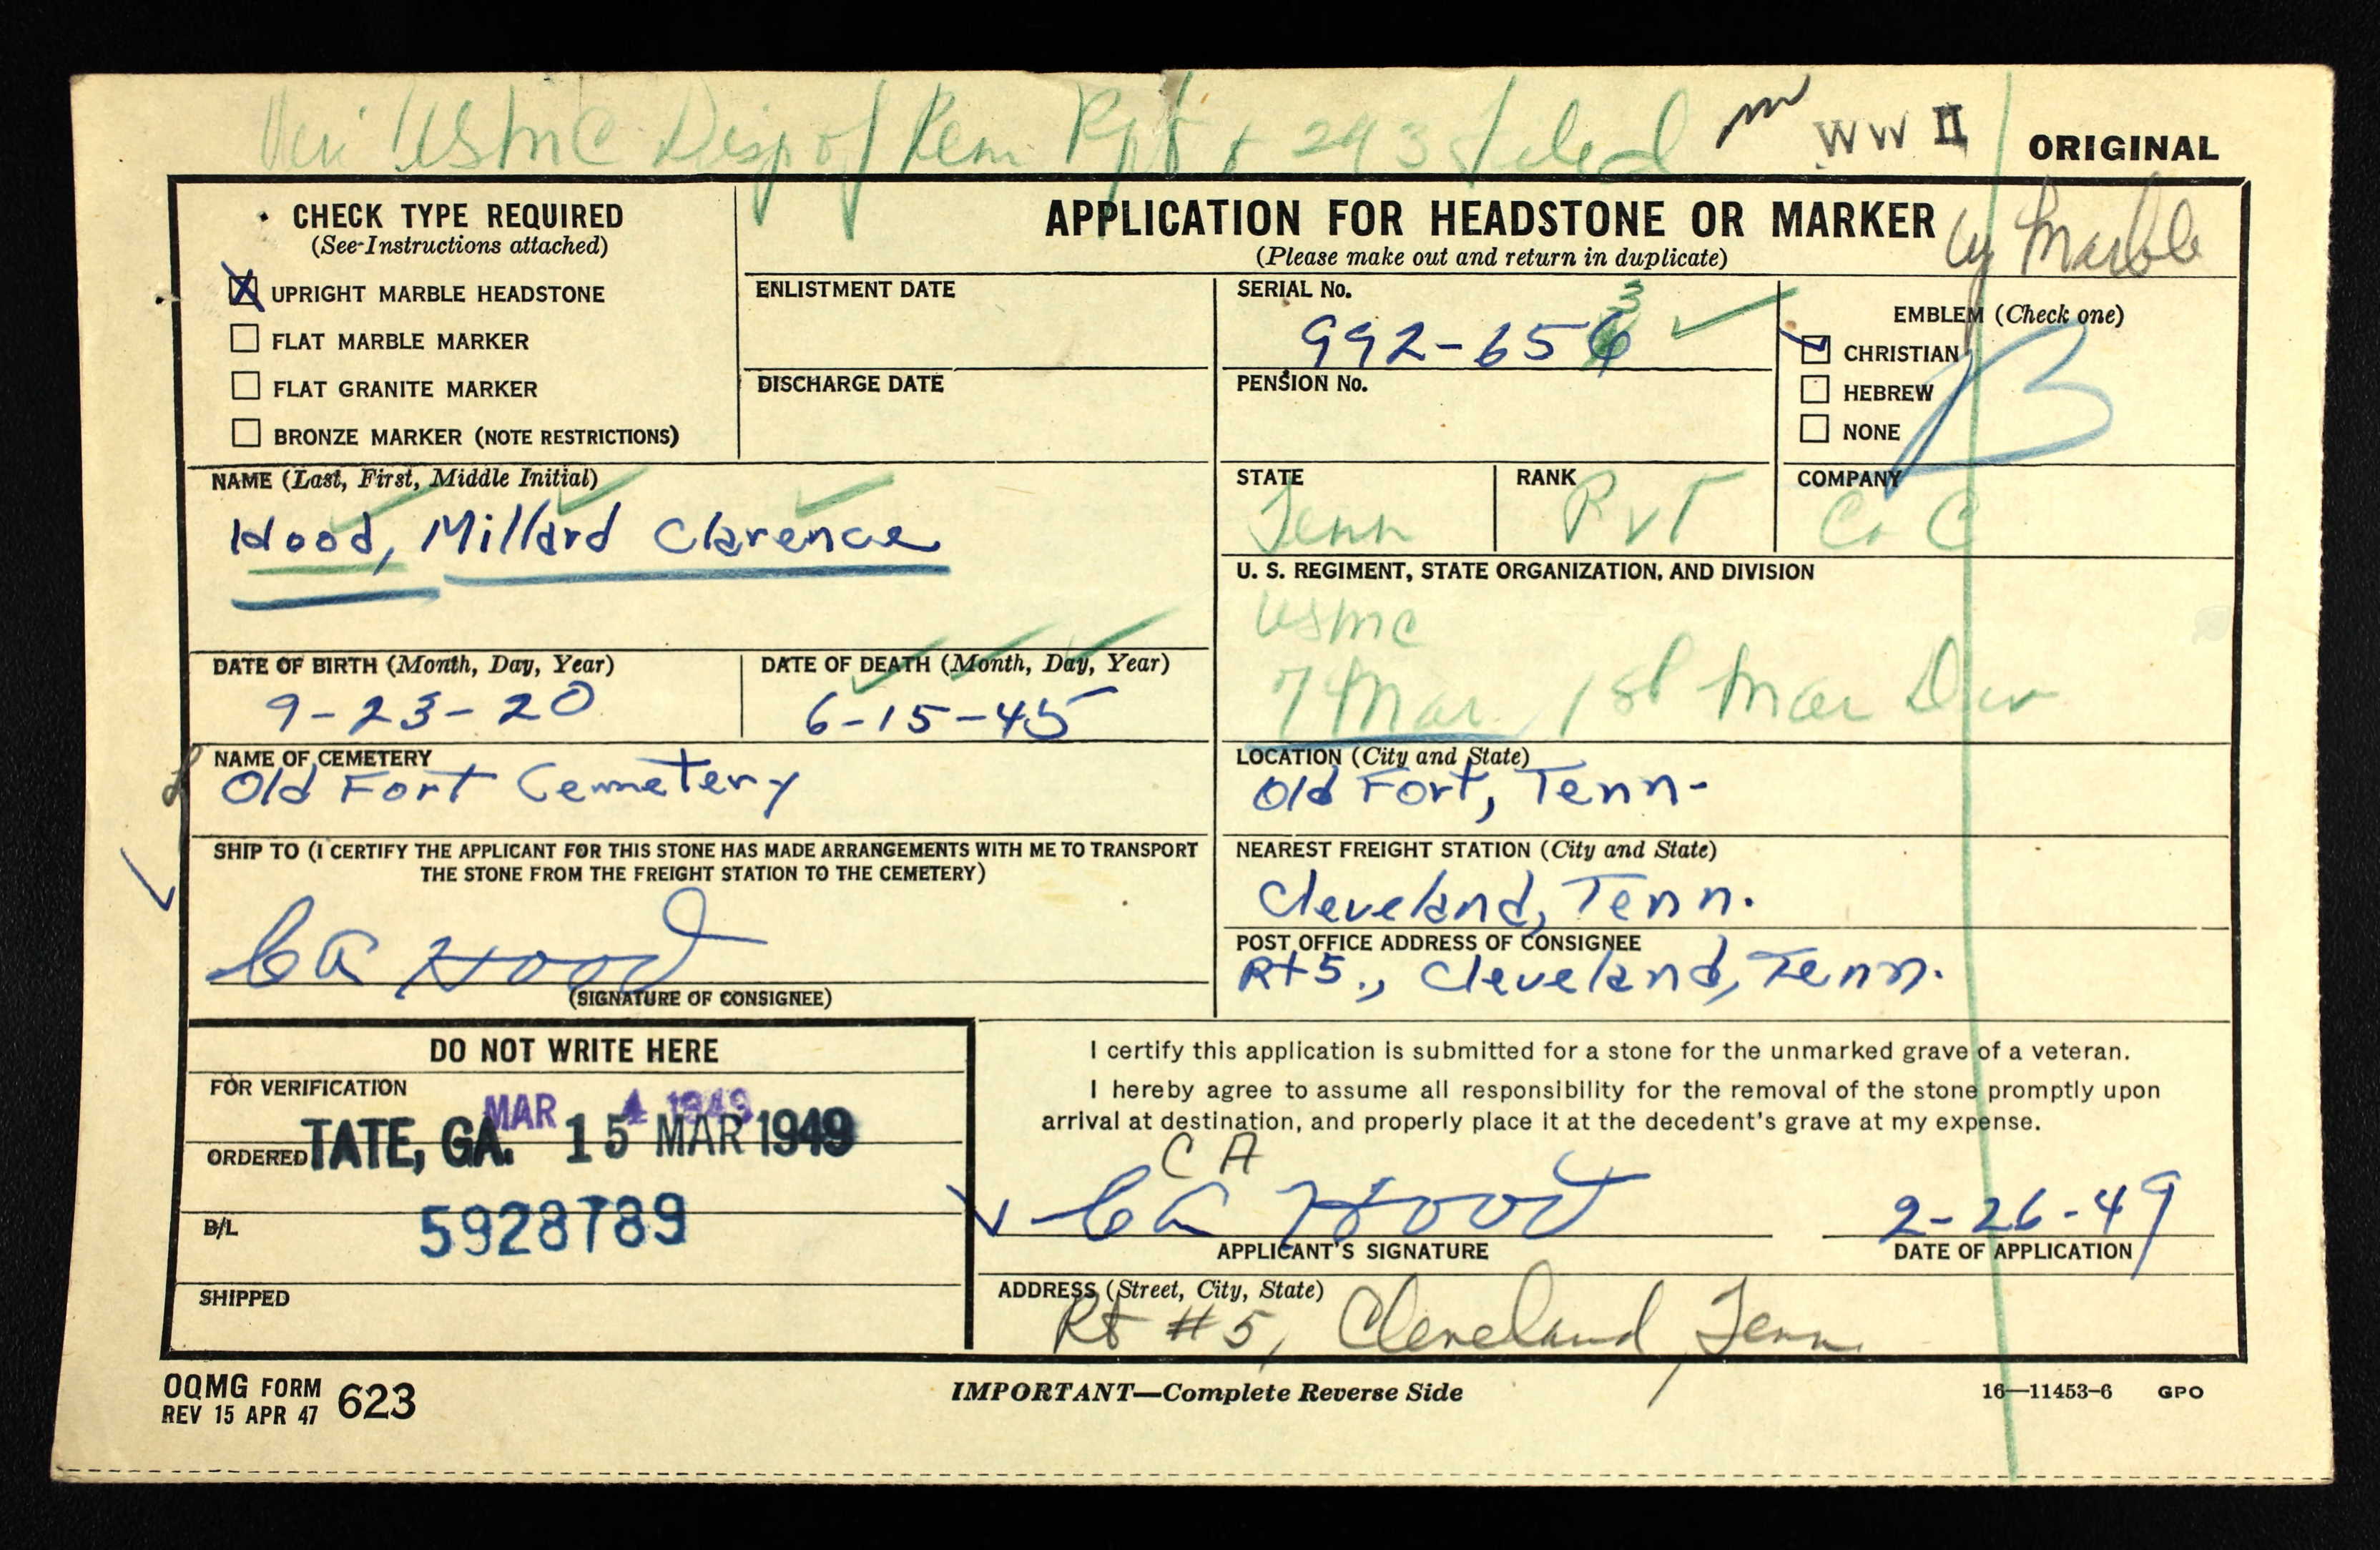 Veri USMC Disp of Rem Rpt + 293 filed
WW II
ORIGINAL
CHECK TYPE REQUIRED
(See Instructions attached)
X UPRIGHT MARBLE HEADSTONE
FLAT MARBLE MARKER
FLAT GRANITE MARKER
BRONZE MARKER (NOTE RESTRICTIONS)
APPLICATION FOR HEADSTONE OR MARKER
(Please make out and return in duplicate)
Marble
ENLISTMENT DATE
DISCHARGE DATE
SERIAL No.
3
992-656
PENSION No.
EMBLEM (Check one)
CHRISTIAN
HEBREW
NONE
B
NAME (Last, First, Middle Initial)
Hood, Millard Clarence
STATE
Tenn
RANK
Pvt
COMPANY
Co C
U. S. REGIMENT, STATE ORGANIZATION, AND DIVISION
USMC
7 Mar 1st Mar Div
DATE OF BIRTH (Month, Day, Year)
9-23-20
DATE OF DEATH (Month, Day, Year)
6-15-45
NAME OF CEMETERY
Old Fort Cemetery
LOCATION (City and State)
Old Fort, Tenn-
SHIP TO (I CERTIFY THE APPLICANT FOR THIS STONE HAS MADE ARRANGEMENTS WITH ME TO TRANSPORT
THE STONE FROM THE FREIGHT STATION TO THE CEMETERY)
CA Hood
(SIGNATURE OF CONSIGNEE)
NEAREST FREIGHT STATION (City and State)
Cleveland, Tenn.
POST OFFICE ADDRESS OF CONSIGNEE
Rt 5., Cleveland, Tenn.
DO NOT WRITE HERE
FOR VERIFICATION
MAR 4 1949
ORDERED TATE, GA. 15 MAR 1949
B/L
5928789
SHIPPED
I certify this application is submitted for a stone for the unmarked grave of a veteran.
I hereby agree to assume all responsibility for the removal of the stone promptly upon
arrival at destination, and properly place it at the decedent's grave at my expense.
C A
CA Hood
2-26-49
APPLICANT'S SIGNATURE
DATE OF APPLICATION
ADDRESS (Street, City, State)
Rt #5, Cleveland, Tenn
OQMG FORM 623
REV 15 APR 47
IMPORTANT—Complete Reverse Side
16—11453-6 GPO